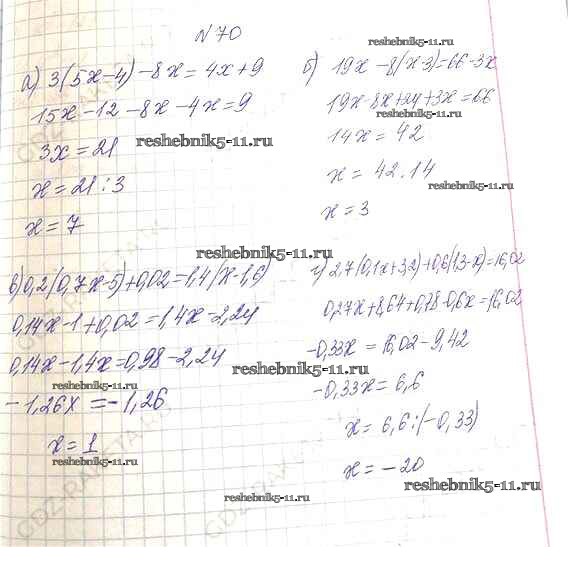 №70
а) 3(5х-4)-8х=4х+9
15х-12-8х-4х=9
3х=21
х=21:3
х=7
б) 19х-8(х-3)=66-3х
19х-8х+24+3х=66
14х=42
х=42.14
х=3
в) 0,2(0,7х-5)+0,02=1,4(х-1,6)
0,14х-1+0,02=1,4х-2,24
0,14х-1,4х=0,98-2,24
-1,26х=-1,26
х=1
г) 2,7(0,1х+3,2)+0,6(1,3-х)=16,02
0,27х+8,64+0,78-0,6х=16,02
-0,33х=16,02-9,42
-0,33х=6,6
х=6,6:(-0,33)
х=-20
reshebnik5-11.ru
reshebnik5-11.ru
reshebnik5-11.ru
reshebnik5-11.ru
reshebnik5-11.ru
reshebnik5-11.ru
reshebnik5-11.ru
reshebnik5-11.ru
reshebnik5-11.ru
reshebnik5-11.ru
reshebnik5-11.ru